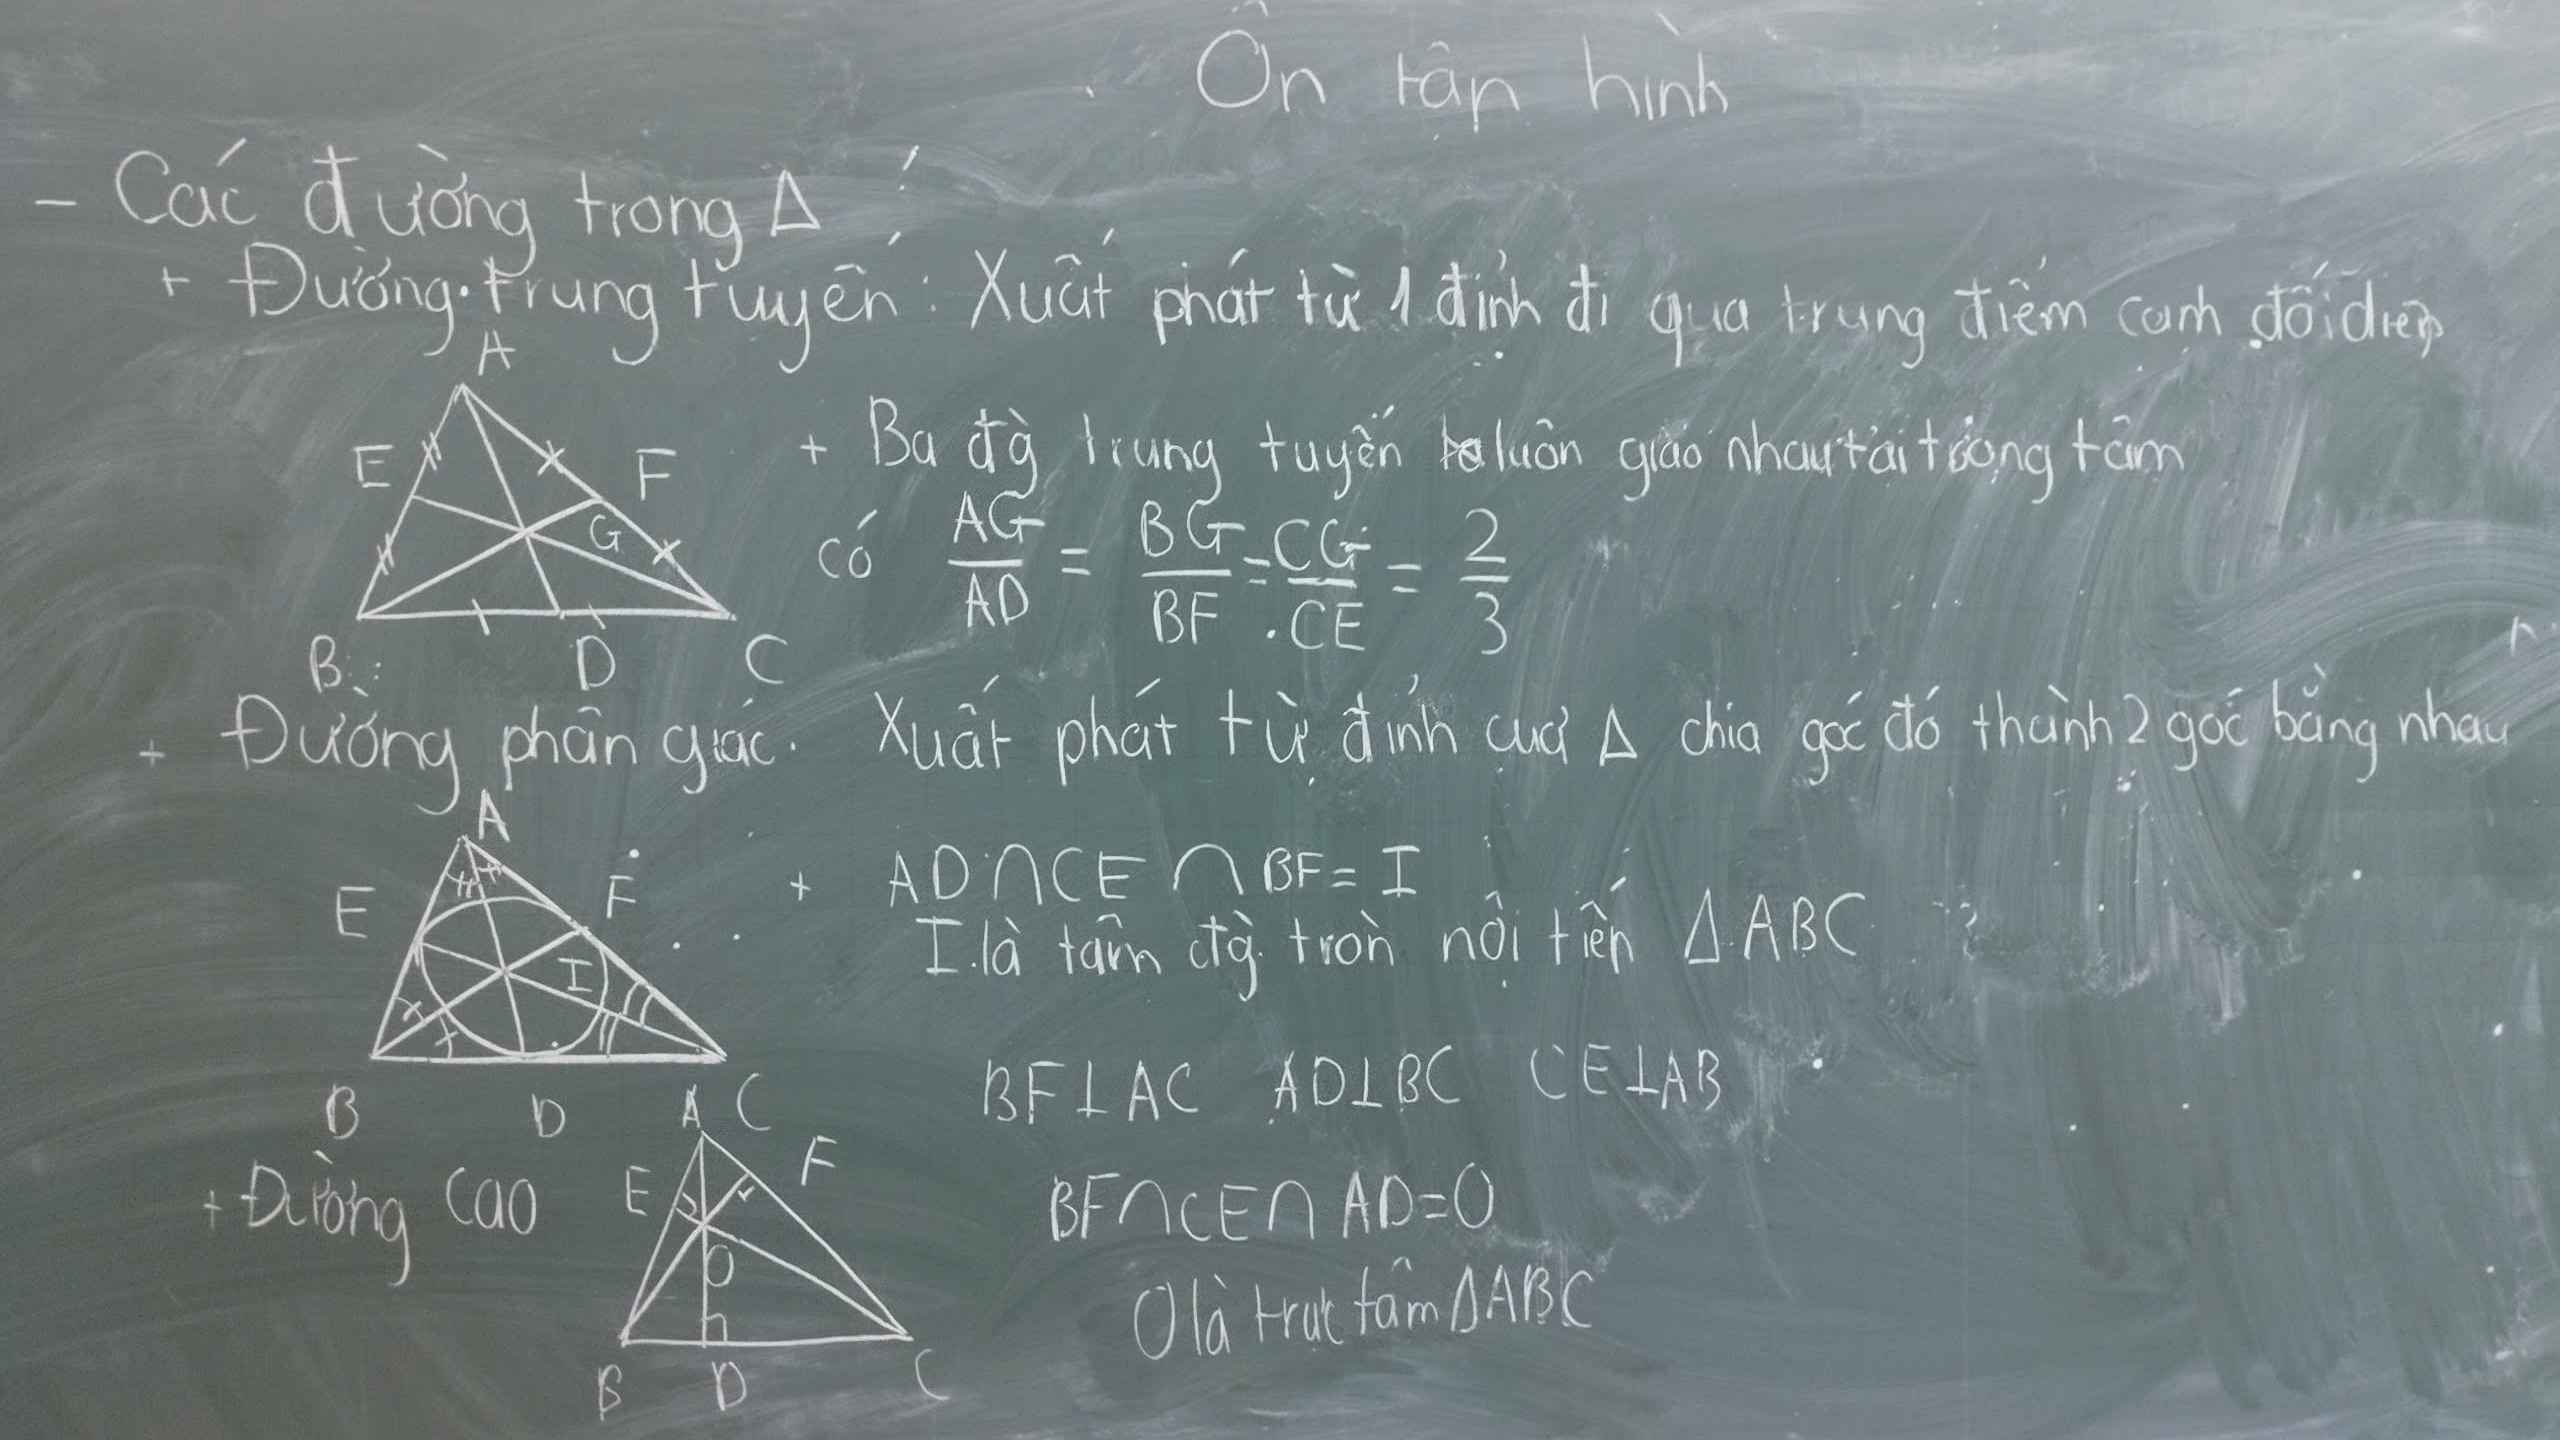 Ôn tập hình
- Các đường trong Δ
+ Đường trung tuyến : Xuất phát từ 1 đỉnh đi qua trung điểm cạnh đối diện
A
E F
G
B D C
+ Ba đg trung tuyến luôn giao nhau tại trọng tâm
có AG/AD = BG/BF = CG/CE = 2/3
+ Đường phân giác. Xuất phát từ đỉnh của Δ chia góc đó thành 2 góc bằng nhau
A
E F
I
B D C
+ AD ∩ CE ∩ BF = I
I là tâm đg tròn nội tiếp Δ ABC
+ Đường cao
A
E F
O
B D C
BF ⊥ AC AD ⊥ BC CE ⊥ AB
BF ∩ CE ∩ AD = O
O là trực tâm Δ ABC